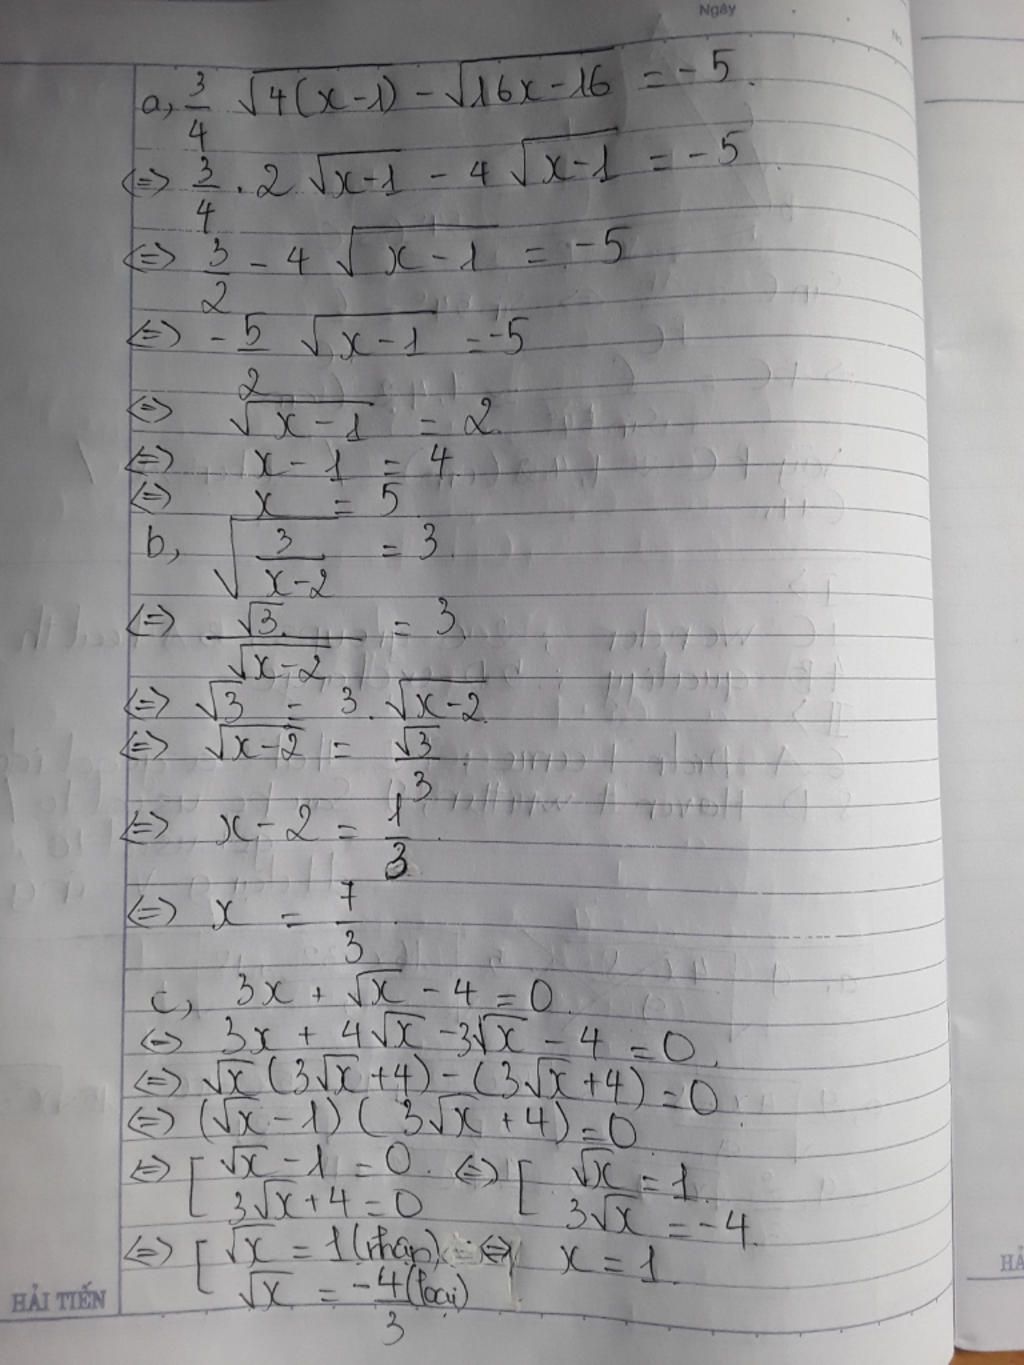 Ngày
No
a, 3/4 √4(x-1) - √16x-16 = -5.
<=> 3/4 . 2 √x-1 - 4 √x-1 = -5
<=> 3/2 - 4 √x-1 = -5
<=> -5/2 √x-1 = -5
<=> √x-1 = 2.
<=> x - 1 = 4
<=> x = 5
b, √3/x-2 = 3.
<=> √3/√x-2 = 3
<=> √3 = 3.√x-2
<=> √x-2 = √3/3
<=> x - 2 = 1/3
<=> x = 7/3
c, 3x + √x - 4 = 0
<=> 3x + 4√x - 3√x - 4 = 0.
<=> √x (3√x + 4) - (3√x + 4) = 0
<=> (√x - 1) (3√x + 4) = 0
<=> [ √x - 1 = 0. <=> [ √x = 1.
3√x + 4 = 0 3√x = -4.
<=> [ √x = 1 (nhận) <=> x = 1
√x = -4/3 (loại)
HẢI TIẾN
HẢ